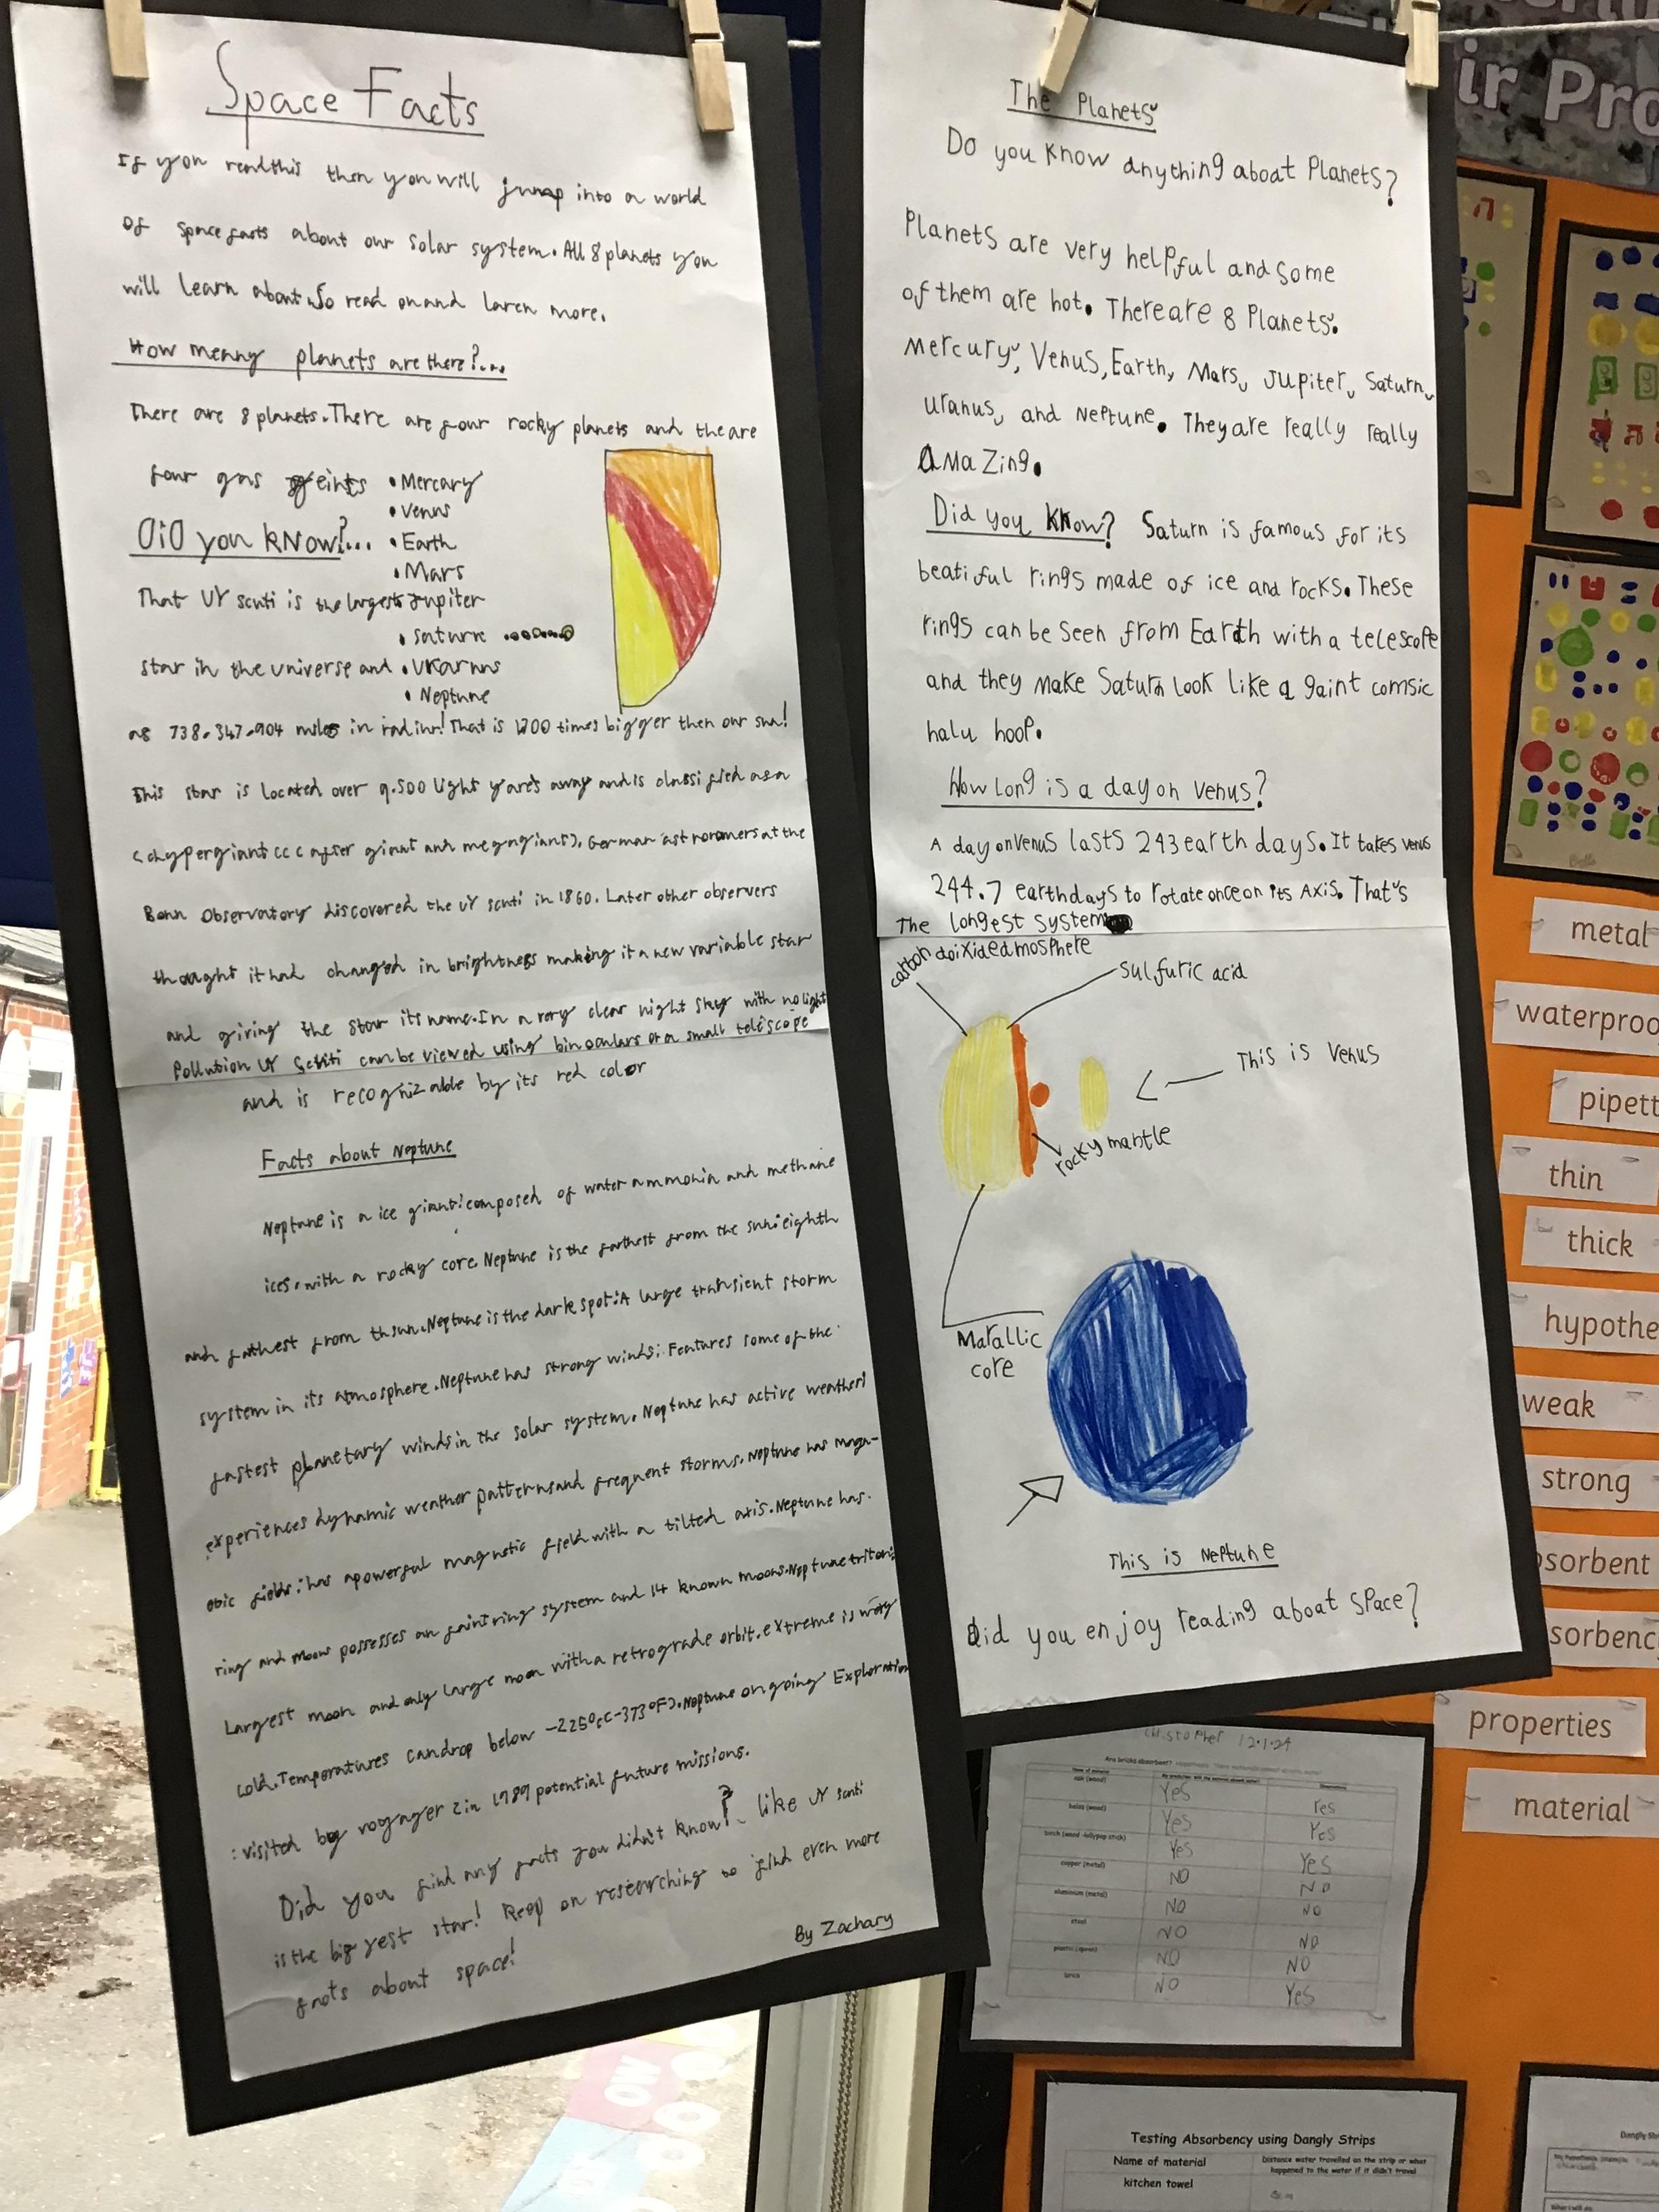 Space Facts
If you readthis then you will jump into a world
of Space facts about our Solar system. All 8 planets you
will learn about. So read on and laren more.
How menny planets are there?...
There are 8 planets. There are four rocky planets and the are
four gas geints
• Mercary
• Venus
• Earth
• Mars
Jupiter
• Saturne
• Ukarnus
• Neptune
DiD you know?...
That UY scuti is the largest
star in the universe and
as 738.347.904 miles in radiur! That is 1700 times bigger then our sun!
This star is located over 9.500 light yares away and is classified as a
hypergiant (after giant and megagiant). German astronomers at the
Bonn Observatory discovered the UY scuti in 1860. Later other observers
thought it had changed in brightness making it a new variable star
and giving the star its name. In a very clear night sky with no light
Pollution UY Scuti can be viewed using binoculars or a small telescope
and is recognizable by its red color
Facts about Neptune
Neptune is a ice giant: composed of water ammonia and methane
ices. with a rocky core. Neptune is the farthest from the sun: eighth
and fathest from thsun. Neptune is the dark spot: A large transient storm
system in its atmosphere. Neptune has strong winds: Features some of the
fastest planetary winds in the solar system. Neptune has active weather:
experiences dynamic weather patterns and frequent storms. Neptune has maga-
etic fields: has a powerful magnetic field with a tilted axis. Neptune has
ring and moons possesses an faint ring system and 14 known moons. Neptune triton:
Largest moon and only large moon with a retrograde orbit. extreme is
cold. Temperatures can drop below -225°c(-373°F). Neptune on going Exploration
: visited by voyager 2 in 1989 potential future missions.
Did you find any facts you didn't know? like UY scuti
is the biggest star! Keep on researching to find even more
facts about space!
By Zachary
The Planets
Do you know anything aboat Planets?
Planets are very helpful and some
of them are hot. There are 8 Planets.
Mercury, Venus, Earth, Mars, Jupiter, Saturn,
Uranus, and Neptune. They are really really
amazing.
Did you know? Saturn is famous for its
beatiful rings made of ice and rocks. These
rings can be seen from Earth with a telescope
and they make Saturn look like a gaint comsic
halu hoop.
How long is a day on Venus?
A day on Venus lasts 243 earth days. It takes Venus
244.7 earthdays to rotate once on its Axis. That's
The longest system
carbon doixided mosphere
Sulfuric acid
This is Venus
rocky mantle
Matallic
core
This is Neptune
did you enjoy reading aboat space?
ir Pro
metal
waterproo
pipett
thin
thick
hypothe
weak
strong
sorbent
sorbenc
properties
material
Christopher 12.1.24
Are bricks absorbent?
oak (wood) Yes Yes
balsa (wood) Yes Yes
birch (wood - lollypop stick) Yes Yes
copper (metal) NO NO
aluminium (metal) NO NO
steel NO NO
plastic (spoon) NO NO
brick NO Yes
Testing Absorbency using Dangly Strips
Name of material
Distance water travelled on the strip or what
happened to the water if it didn't travel
kitchen towel